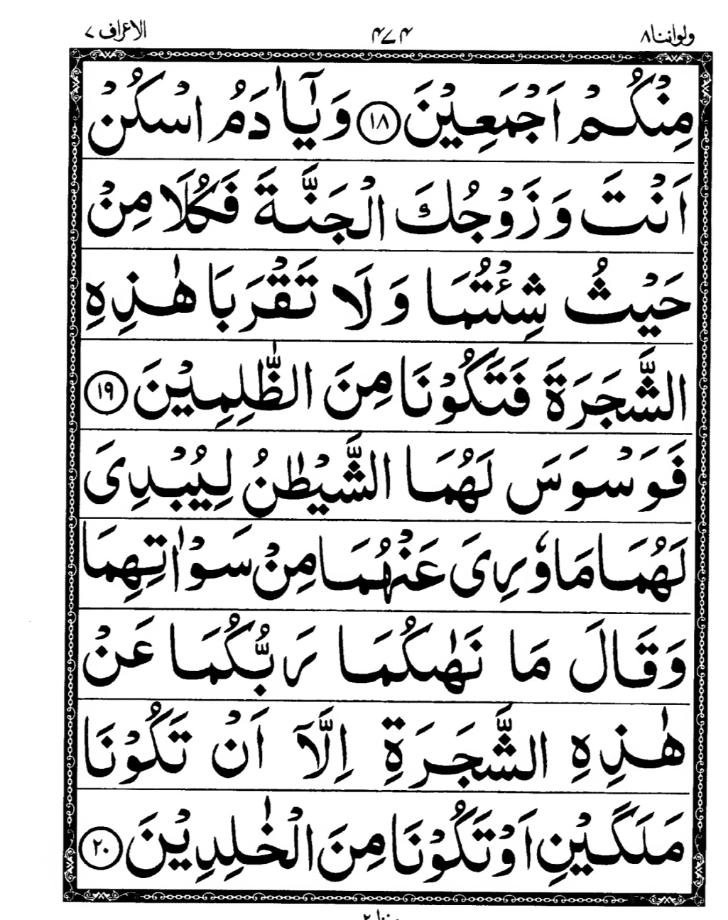 الاعراف ٧ ٤٧٤ ولواننا ٨
مِنْكُمْ اَجْمَعِيْنَ ﴿١٨﴾ وَيٰٓاٰدَمُ اسْكُنْ
اَنْتَ وَزَوْجُكَ الْجَنَّةَ فَكُلَا مِنْ
حَيْثُ شِئْتُمَا وَلَا تَقْرَبَا هٰذِهِ
الشَّجَرَةَ فَتَكُوْنَا مِنَ الظّٰلِمِيْنَ ﴿١٩﴾
فَوَسْوَسَ لَهُمَا الشَّيْطٰنُ لِيُبْدِىَ
لَهُمَا مَا وٗرِىَ عَنْهُمَا مِنْ سَوْاٰتِهِمَا
وَقَالَ مَا نَهٰىكُمَا رَبُّكُمَا عَنْ
هٰذِهِ الشَّجَرَةِ اِلَّآ اَنْ تَكُوْنَا
مَلَكَيْنِ اَوْ تَكُوْنَا مِنَ الْخٰلِدِيْنَ ﴿٢٠﴾